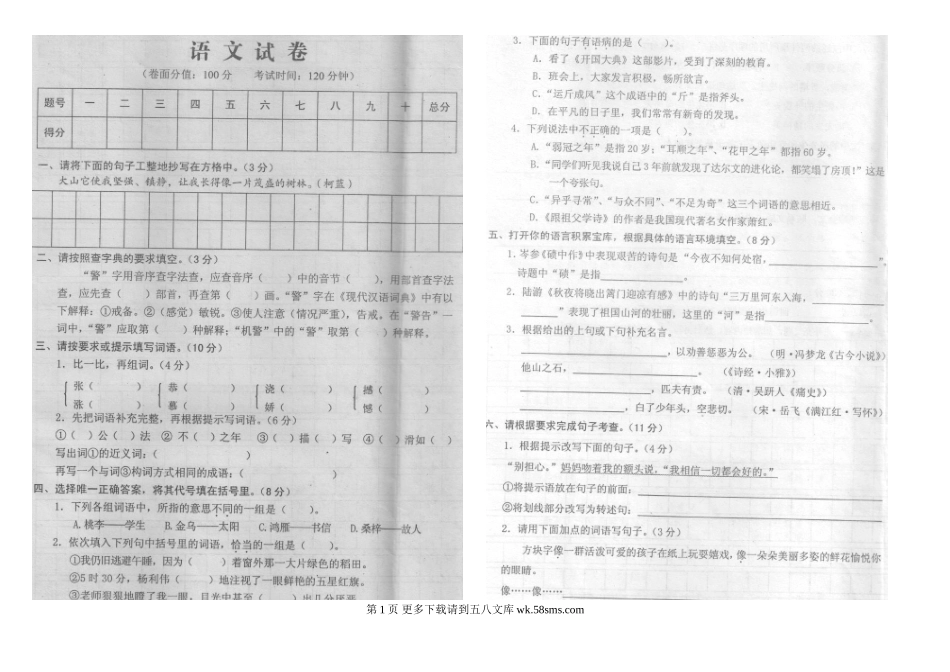 语文试卷
（卷面分值：100分 考试时间：120分钟）
题号 一 二 三 四 五 六 七 八 九 十 总分
得分
一、请将下面的句子工整地抄写在方格中。（3分）
大山它使我坚强、镇静，让我长得像一片茂盛的树林。（柯蓝）
二、请按照查字典的要求填空。（3分）
“警”字用音序查字法查，应查音序（ ）中的音节（ ），用部首查字法
查，应先查（ ）部首，再查第（ ）画。“警”字在《现代汉语词典》中有以
下解释：①戒备。②（感觉）敏锐。③使人注意（情况严重），告戒。在“警告”一
词中，“警”应取第（ ）种解释；“机警”中的“警”取第（ ）种解释。
三、请按要求或提示填写词语。（10分）
1．比一比，再组词。（4分）
张（ ） 恭（ ） 浇（ ） 撼（ ）
涨（ ） 慕（ ） 娇（ ） 憾（ ）
2．先把词语补充完整，再根据提示写词语。（6分）
①（ ）公（ ）法 ② 不（ ）之年 ③（ ）描（ ）写 ④（ ）滑如（ ）
写出词①的近义词：（ ）
再写一个与词③构词方式相同的成语：（ ）
四、选择唯一正确答案，将其代号填在括号里。（8分）
1．下列各组词语中，所指的意思不同的一组是（ ）。
A.桃李——学生 B.金乌——太阳 C.鸿雁——书信 D.桑梓——故人
2．依次填入下列句中括号里的词语，恰当的一组是（ ）。
①我仍旧逃避午睡，因为（ ）着窗外那一大片绿色的稻田。
②5时30分，杨利伟（ ）地注视了一眼鲜艳的五星红旗。
③老师狠狠地瞪了我一眼，目光中甚至（ ）出几分厌恶
3．下面的句子有语病的是（ ）。
A．看了《开国大典》这部影片，受到了深刻的教育。
B．班会上，大家发言积极，畅所欲言。
C．“运斤成风”这个成语中的“斤”是指斧头。
D．在平凡的日子里，我们常常有新奇的发现。
4．下列说法中不正确的一项是（ ）。
A．“弱冠之年”是指20岁；“耳顺之年”、“花甲之年”都指60岁。
B．“同学们听见我说自己3年前就发现了达尔文的进化论，都笑塌了房顶！”这是
一个夸张句。
C．“异乎寻常”、“与众不同”、“不足为奇”这三个词语的意思相近。
D．《跟祖父学诗》的作者是我国现代著名女作家萧红。
五、打开你的语言积累宝库，根据具体的语言环境填空。（8分）
1．岑参《碛中作》中表现艰苦的诗句是“今夜不知何处宿，”，
诗题中“碛”是指。
2．陆游《秋夜将晓出篱门迎凉有感》中的诗句“三万里河东入海，
”表现了祖国山河的壮丽，这里的“河”是指。
3．根据给出的上句或下句补充名言。
，以劝善惩恶为公。 （明·冯梦龙《古今小说》）
他山之石，。 （《诗经·小雅》）
，匹夫有责。 （清·吴趼人《痛史》）
，白了少年头，空悲切。 （宋·岳飞《满江红·写怀》）
六、请根据要求完成句子考查。（11分）
1．根据提示改写下面的句子。（4分）
“别担心。”妈妈吻着我的额头说，“我相信一切都会好的。”
①将提示语放在句子的前面：
②将划线部分改写为转述句：
2．请用下面加点的词语写句子。（3分）
方块字像一群活泼可爱的孩子在纸上玩耍嬉戏，像一朵朵美丽多姿的鲜花愉悦你
的眼睛。
像……像……
第 1 页 更多下载请到五八文库 wk.58sms.com